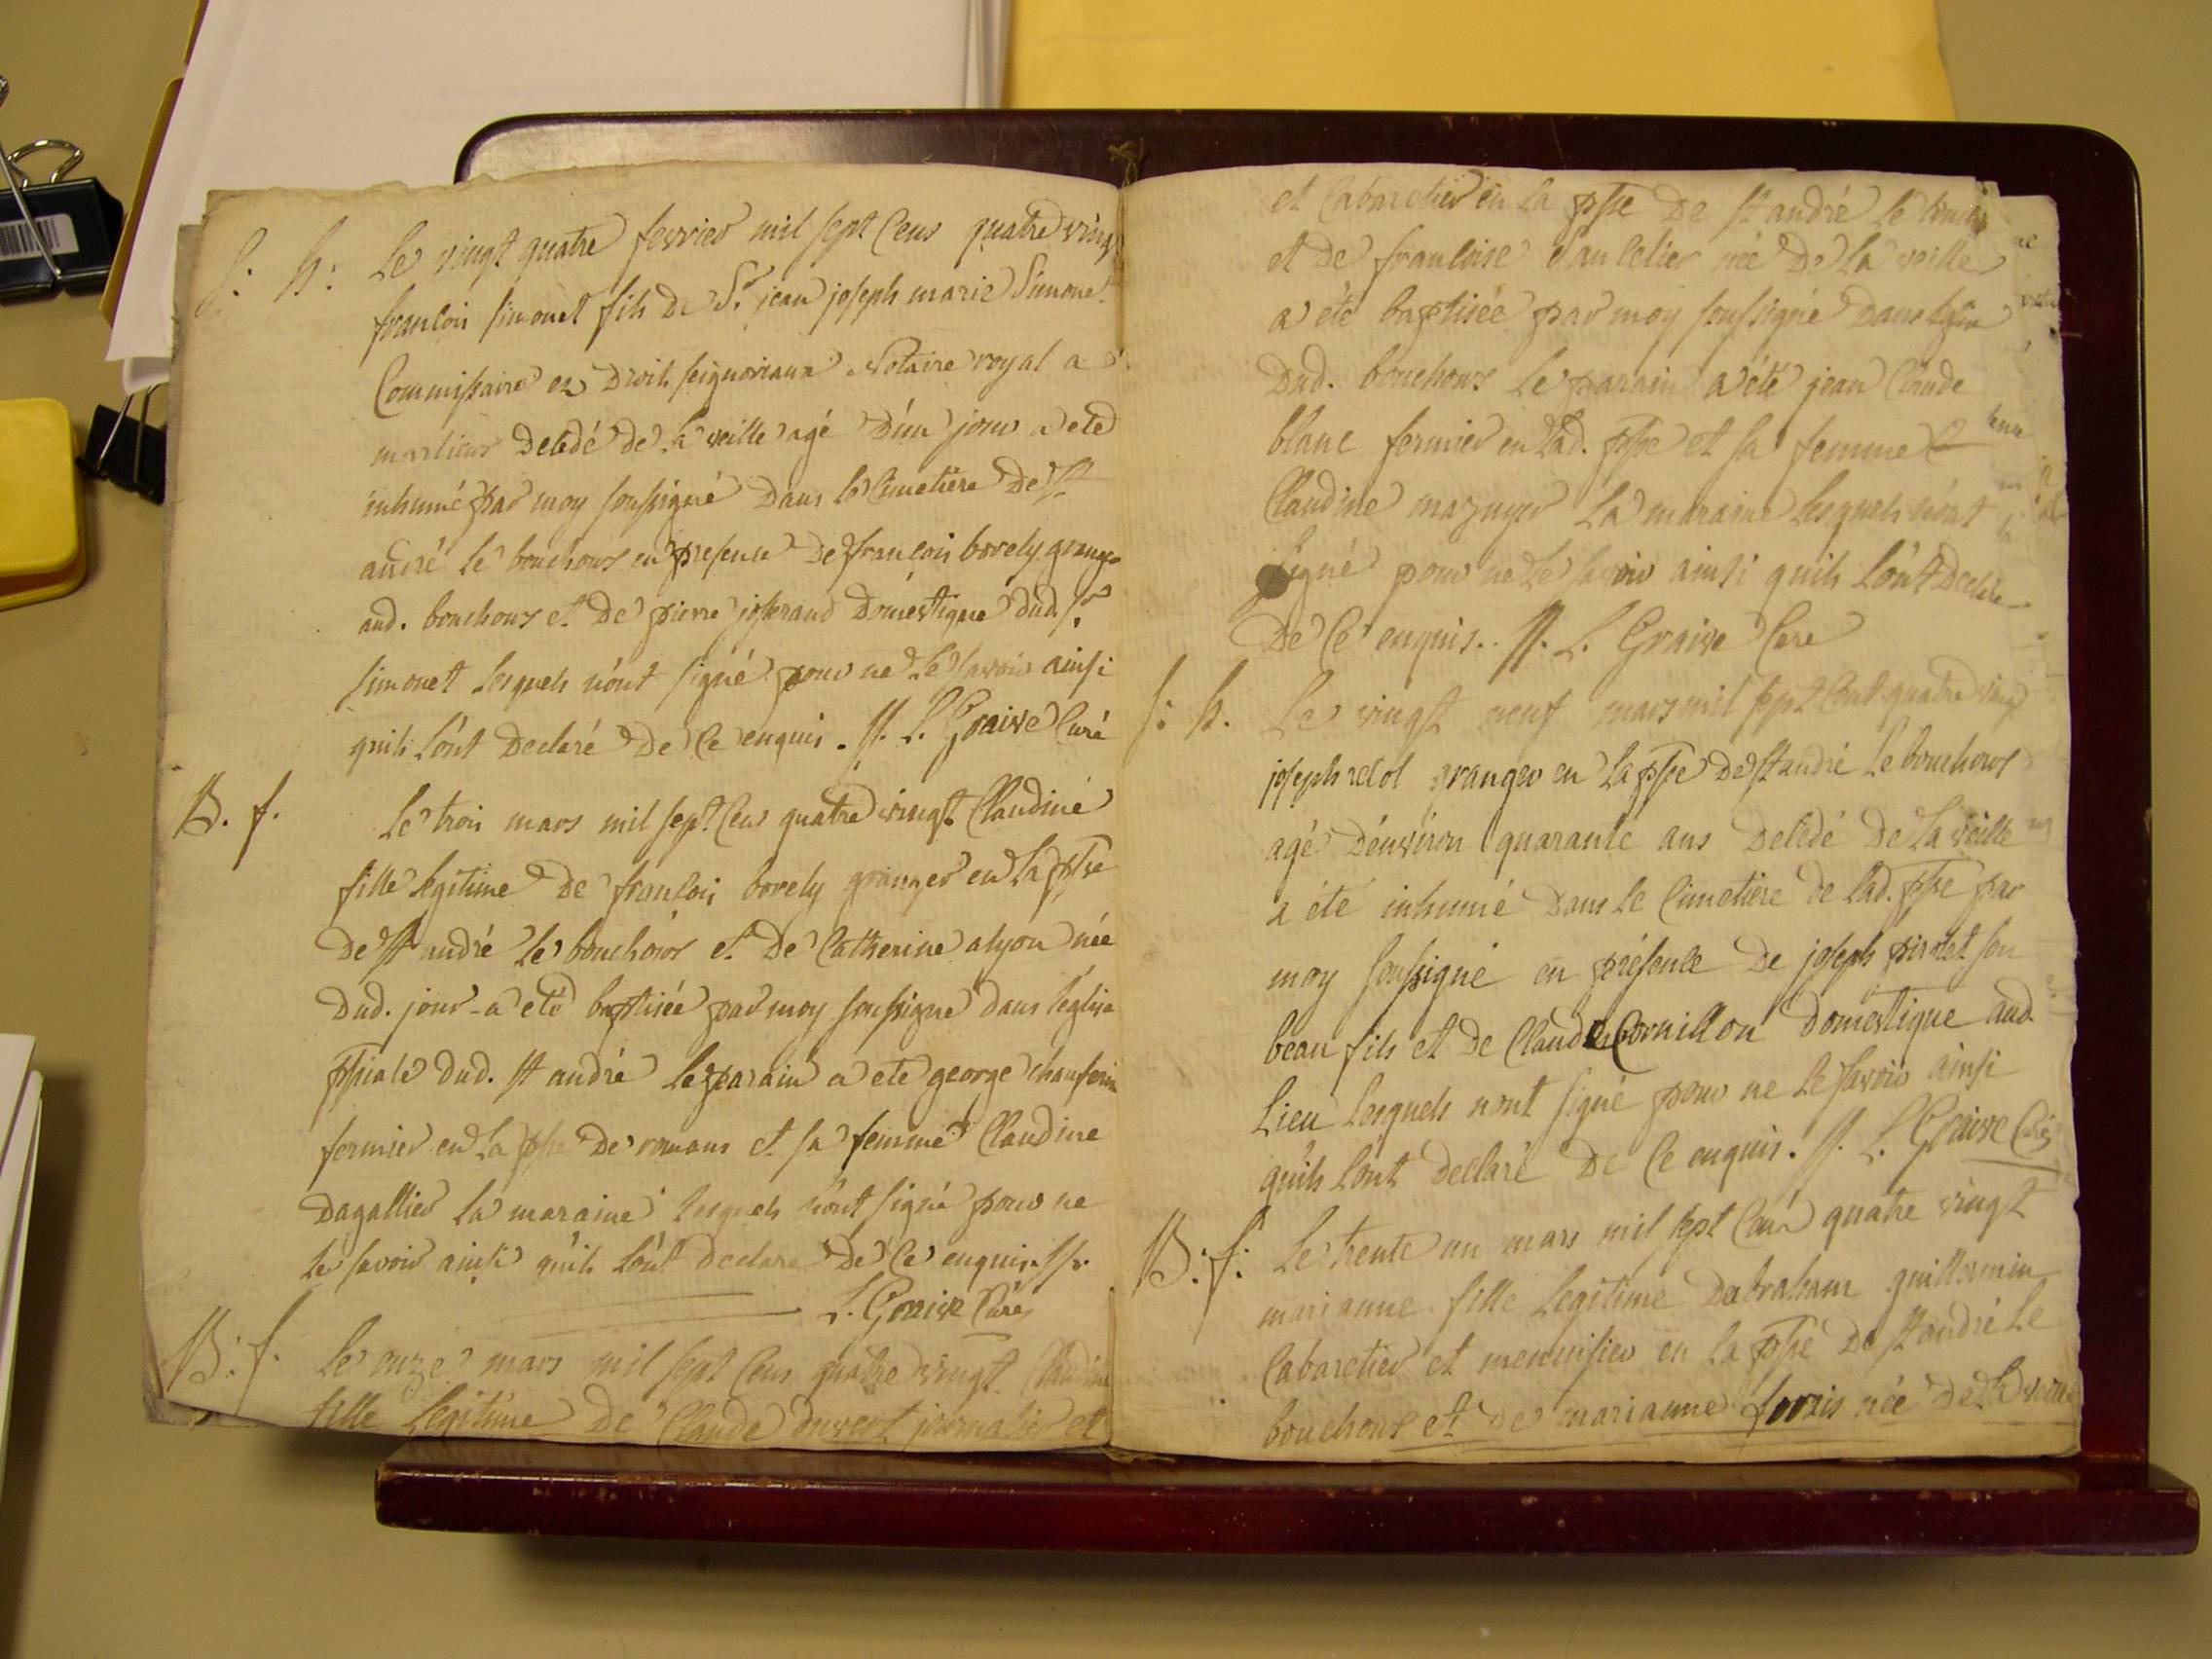 S. h. Le vingt quatre fevrier mil sept cens quatre vingt
francois simonet fils de Sr. jean joseph marie Simonet
Commissaire en droit seignoriaux Notaire royal a
marlieux decedé de la veille agé d'un jour a eté
inhumé par moy soussigné dans le cimetière de st
andré le bouchoux en presence de francois borely granger
aud. bouchoux et de pierre josserand domestique dud. sr
simonet lesquels n'ont signé pour ne le savoir ainsi
quils l'ont declaré de ce enquis. //. L. Graive Curé
B. f. Le trois mars mil sept cens quatre vingt Claudine
fille legitime de francois borely granger en la psse
de st andré le bouchoux et de Catherine alyon née
dud. jour a eté baptisée par moy soussigné dans l'église
pssiale dud. st andré le parain a eté george chanferin
fermier en la psse de romans et sa femme Claudine
dagallier la maraine lesquels n'ont signé pour ne
le savoir ainsi quils l'ont declaré de ce enquis. //.
L. Graive Curé
B. f. Le onze mars mil sept cens quatre vingt Claudine
fille legitime de Claude duvert journalier et
et Cabaretier en la psse de st andré le
et de francoise née de la veille
a été baptisée par moy soussigné dans
dud. bouchoux le parain a été jean Claude
blanc fermier en lad. psse et sa femme
Claudine mazuyer la maraine lesquels n'ont
signé pour ne le savoir ainsi quils l'ont declaré
de ce enquis. //. L. Graive Curé
S. h. Le vingt neuf mars mil sept cent quatre vingt
joseph granger en la psse de st andré le bouchoux
agé d'environ quarante ans decedé de la veille
a été inhumé dans le cimetière de lad. psse par
moy soussigné en présence de joseph pirolet son
beau fils et de Claude Cornillon domestique aud.
lieu lesquels n'ont signé pour ne le savoir ainsi
quils l'ont declaré de ce enquis. //. L. Graive Curé
B. f. Le trente un mars mil sept cens quatre vingt
marianne fille legitime d'abraham guillermin
Cabaretier et menuisier en la psse de st andré le
bouchoux et de marianne née de la veille